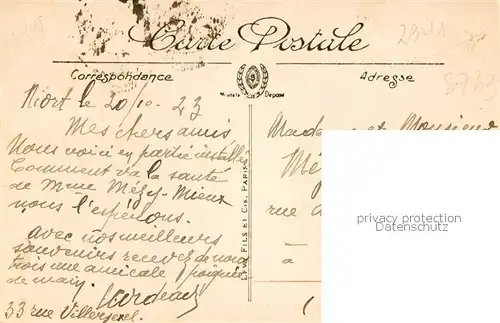 Carte Postale
Correspondance
Adresse
Marque Déposé
Niort le 20/10 - 23
Mes chers amis
Nous voici en partie installés
Comment va la santé
de Mme Mézy - Mieux
nous l'espérons.
Avec nos meilleurs
souvenirs recevez de nous
trois une amicale poignée
de main.
33 rue Villersexel.
LEVY FILS ET CIE, PARIS
Madame et Monsieur
rue
à
privacy protection
Datenschutz